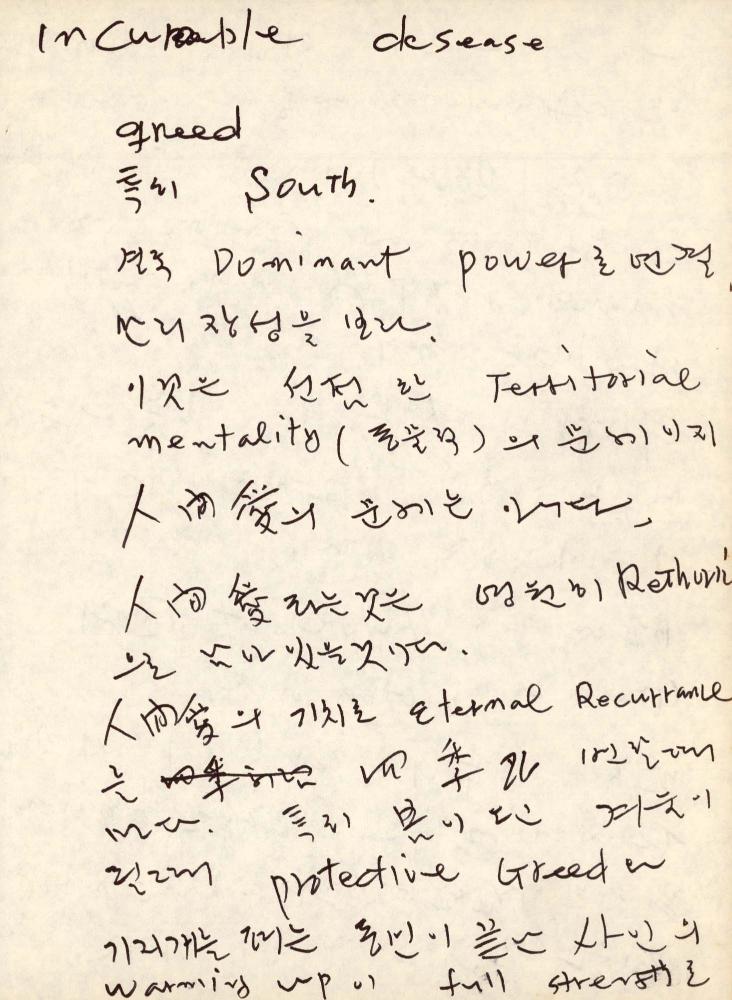 Incurable desease
greed
특히 South.
결국 Dominant power로 먼저
만리장성을 보라.
이것은 선점한 Territorial
mentality (동물적)의 문제이지
人間愛의 문제는 아니다.
人間愛라는 것은 영원히 Rethoric
으로 남아있을 것이다.
人間愛의 기치로 eternal Recurrance
는 四季가 변할때
마다. 특히 봄이 되고 겨울이
될때 protective Greed
기지개를 펴는 동면이 끝난
warming up이 full strength로